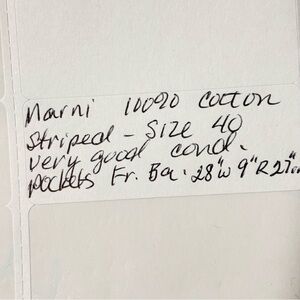 Marni 100% cotton
striped - Size 40
very good cond.
pockets Fr. Ba. 28"w 9"R 27"